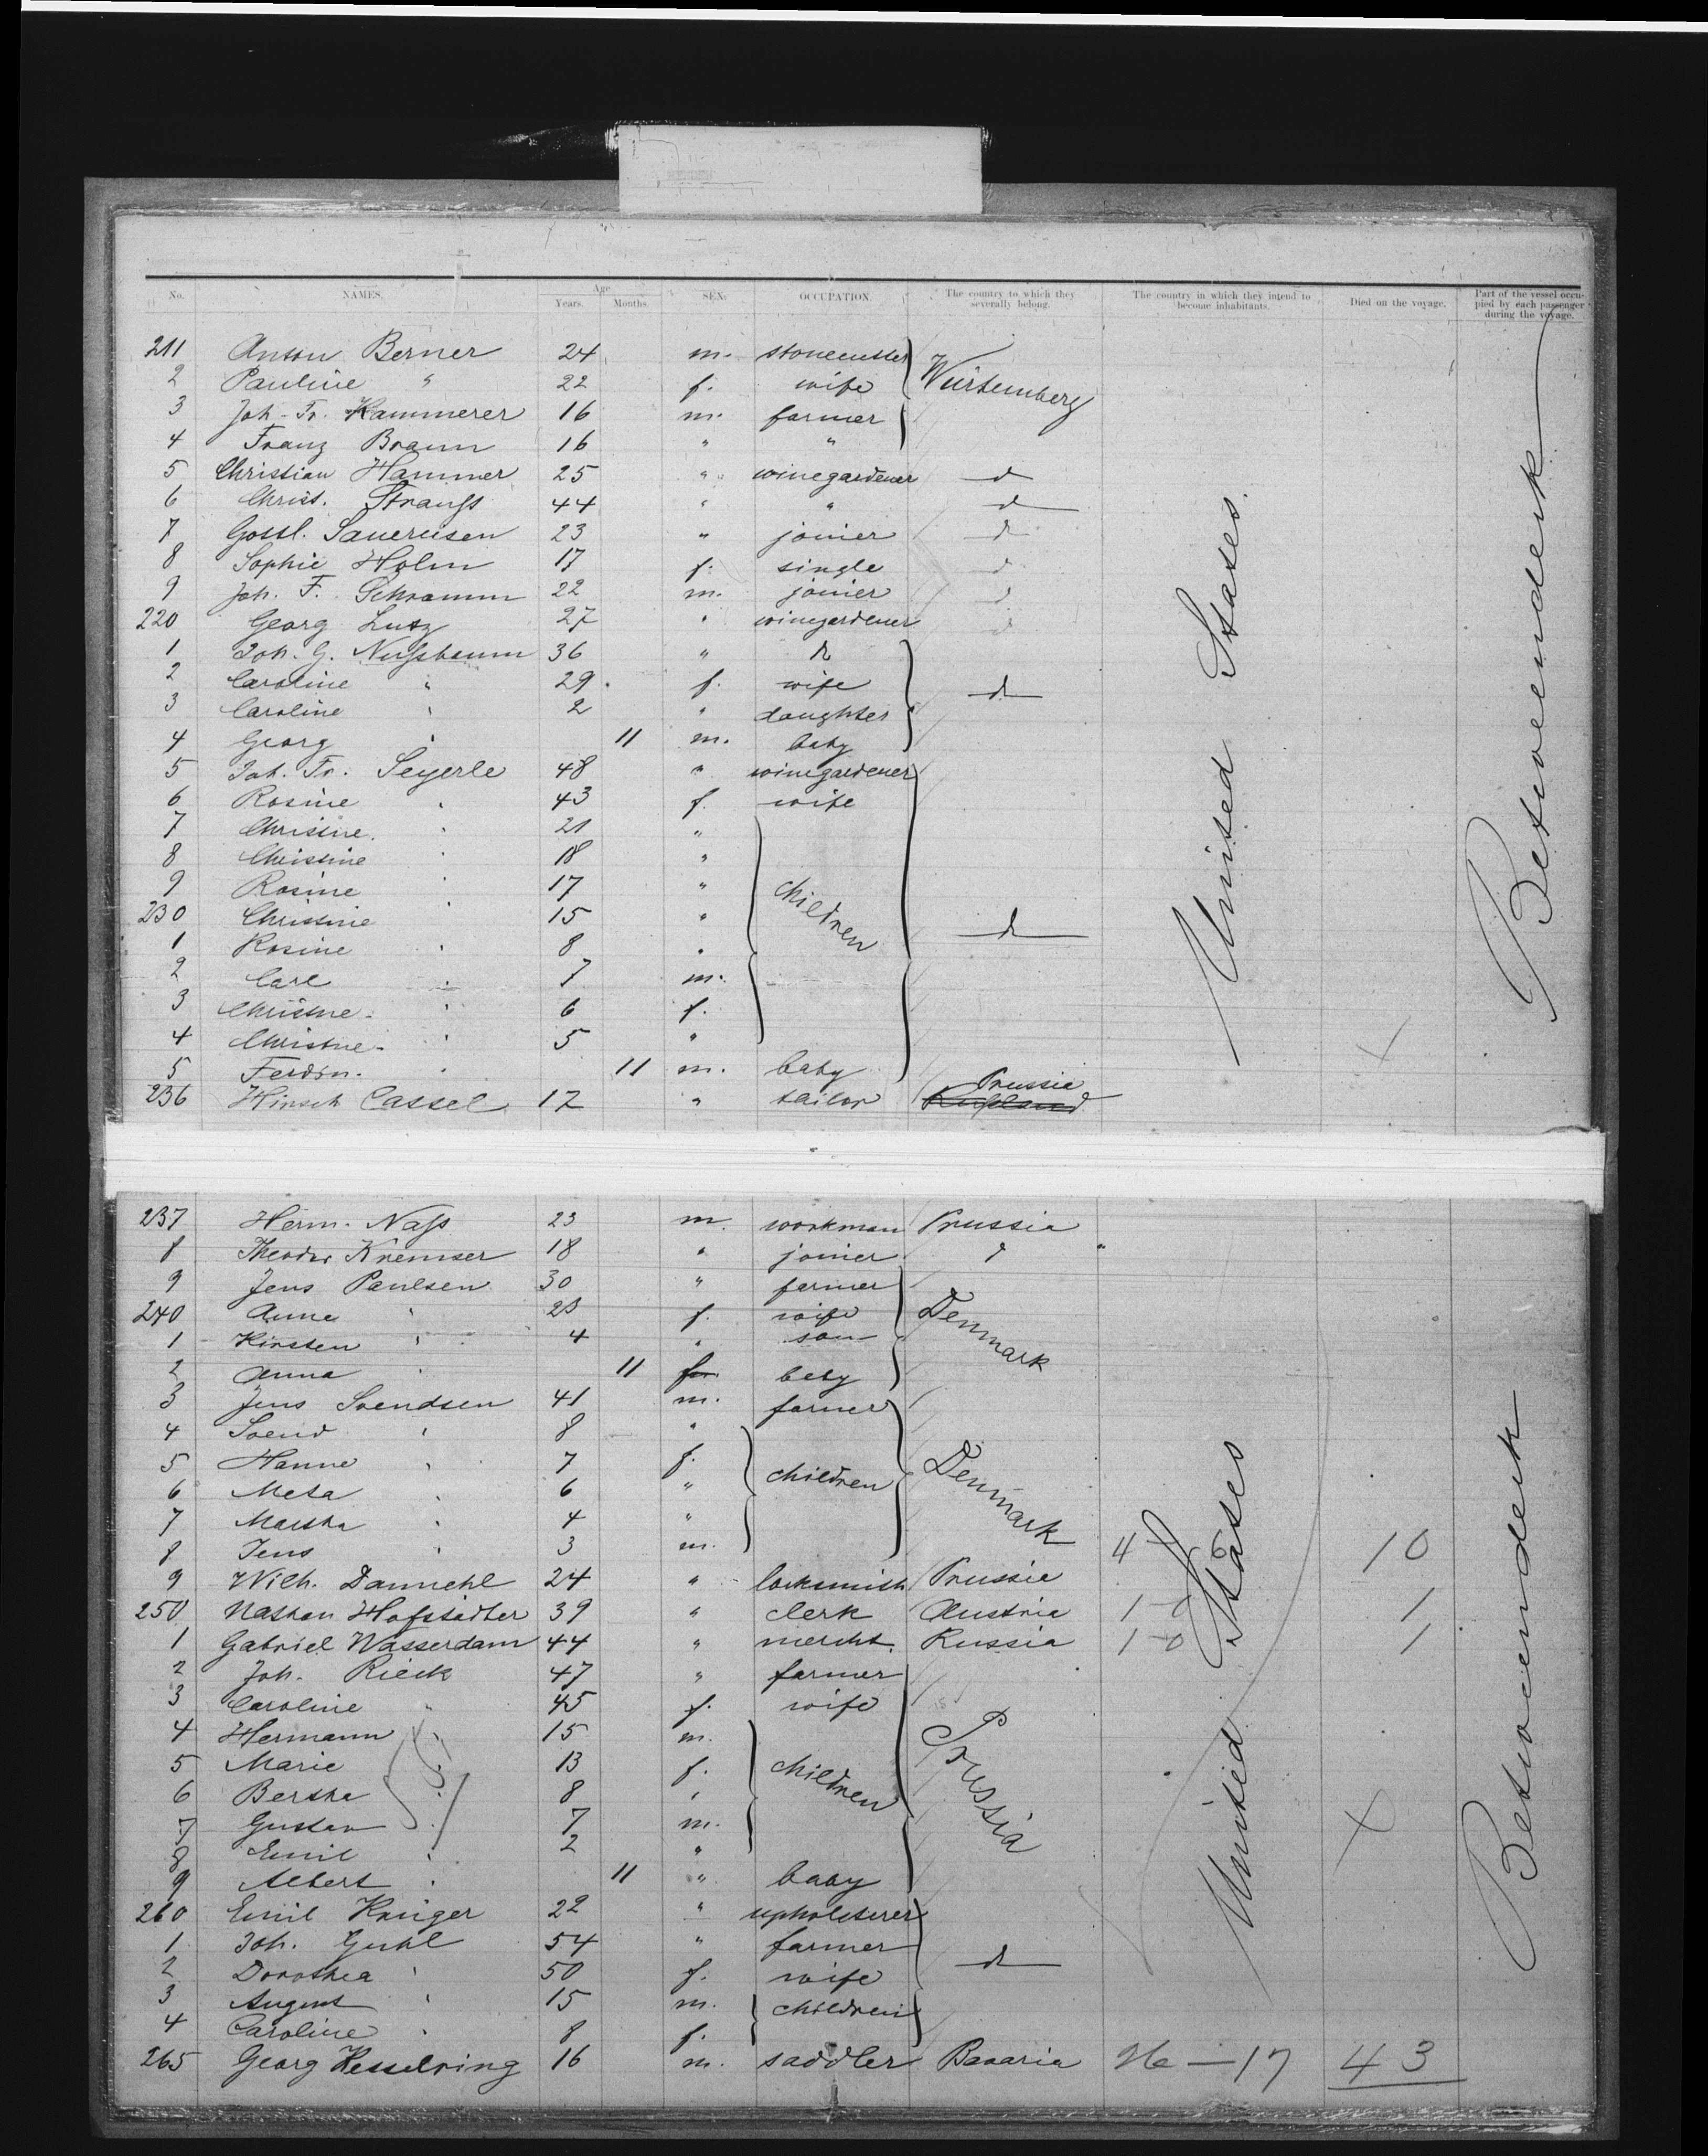 No. NAMES. Age Years. Months. SEX. OCCUPATION. The country to which they severally belong. The country in which they intend to become inhabitants. Died on the voyage. Part of the vessel occupied by each passenger during the voyage.
211 Anton Berner 24 m. stonecutter Würtemberg
2 Pauline " 22 f. wife
3 Joh. Fr. Kammerer 16 m. farmer
4 Franz Braun 16 " "
5 Christian Hammer 25 " winegardener d
6 Christ. Strauß 44 " " d
7 Gottl. Sauereisen 23 " joiner d
8 Sophie Holm 17 f. single d
9 Joh. F. Schramm 22 m. joiner d
220 Georg Lutz 27 " winegardener d
1 Joh. G. Nußbaum 36 " d
2 Caroline " 29 f. wife d
3 Caroline " 2 " daughter
4 Georg " 11 m. baby
5 Joh. Fr. Seyerle 48 " winegardener
6 Rosine " 43 f. wife
7 Christine " 21 "
8 Christine " 18 "
9 Rosine " 17 " children
230 Christine " 15 " d
1 Rosine " 8 "
2 Carl " 7 m.
3 Christne " 6 f.
4 Christne " 5 "
5 Ferdin. " 11 m. baby
236 Hirsch Cassel 17 " tailor Prussia
United States.
Betweendenk
237 Herm. Naß 23 m. workman Prussia
8 Theodor Kremser 18 " joiner d
9 Jens Paulsen 30 " farmer Denmark
240 Anne " 23 f. wife
1 Kirsten " 4 " son
2 Anna " 11 baby
3 Jens Svendsen 41 m. farmer Denmark
4 Svend " 8 "
5 Hanne " 7 f. children
6 Meta " 6 "
7 Martha " 4 "
8 Jens " 3 m. 4 10
9 Wilh. Dannehl 24 " locksmith Prussia
250 Nathan Hofstädter 39 " clerk Austria 1-0 1
1 Gabriel Wasserdam 44 " mercht. Russia 1-0 1
2 Joh. Rieck 47 " farmer Prussia
3 Caroline " 45 f. wife
4 Hermann " 15 m.
5 Marie " 13 f. children
6 Bertha " 8 "
7 Gustav " 7 m.
8 Emil " 2 "
9 Albert " 11 " baby
260 Emil Krüger 22 " upholsterer
1 Joh. Guhl 54 " farmer d
2 Dorothea " 50 f. wife
3 August " 15 m. children
4 Caroline " 8 f.
265 Georg Kesselring 16 m. saddler Bavaria 26 — 17 43
United States
Betweendenk